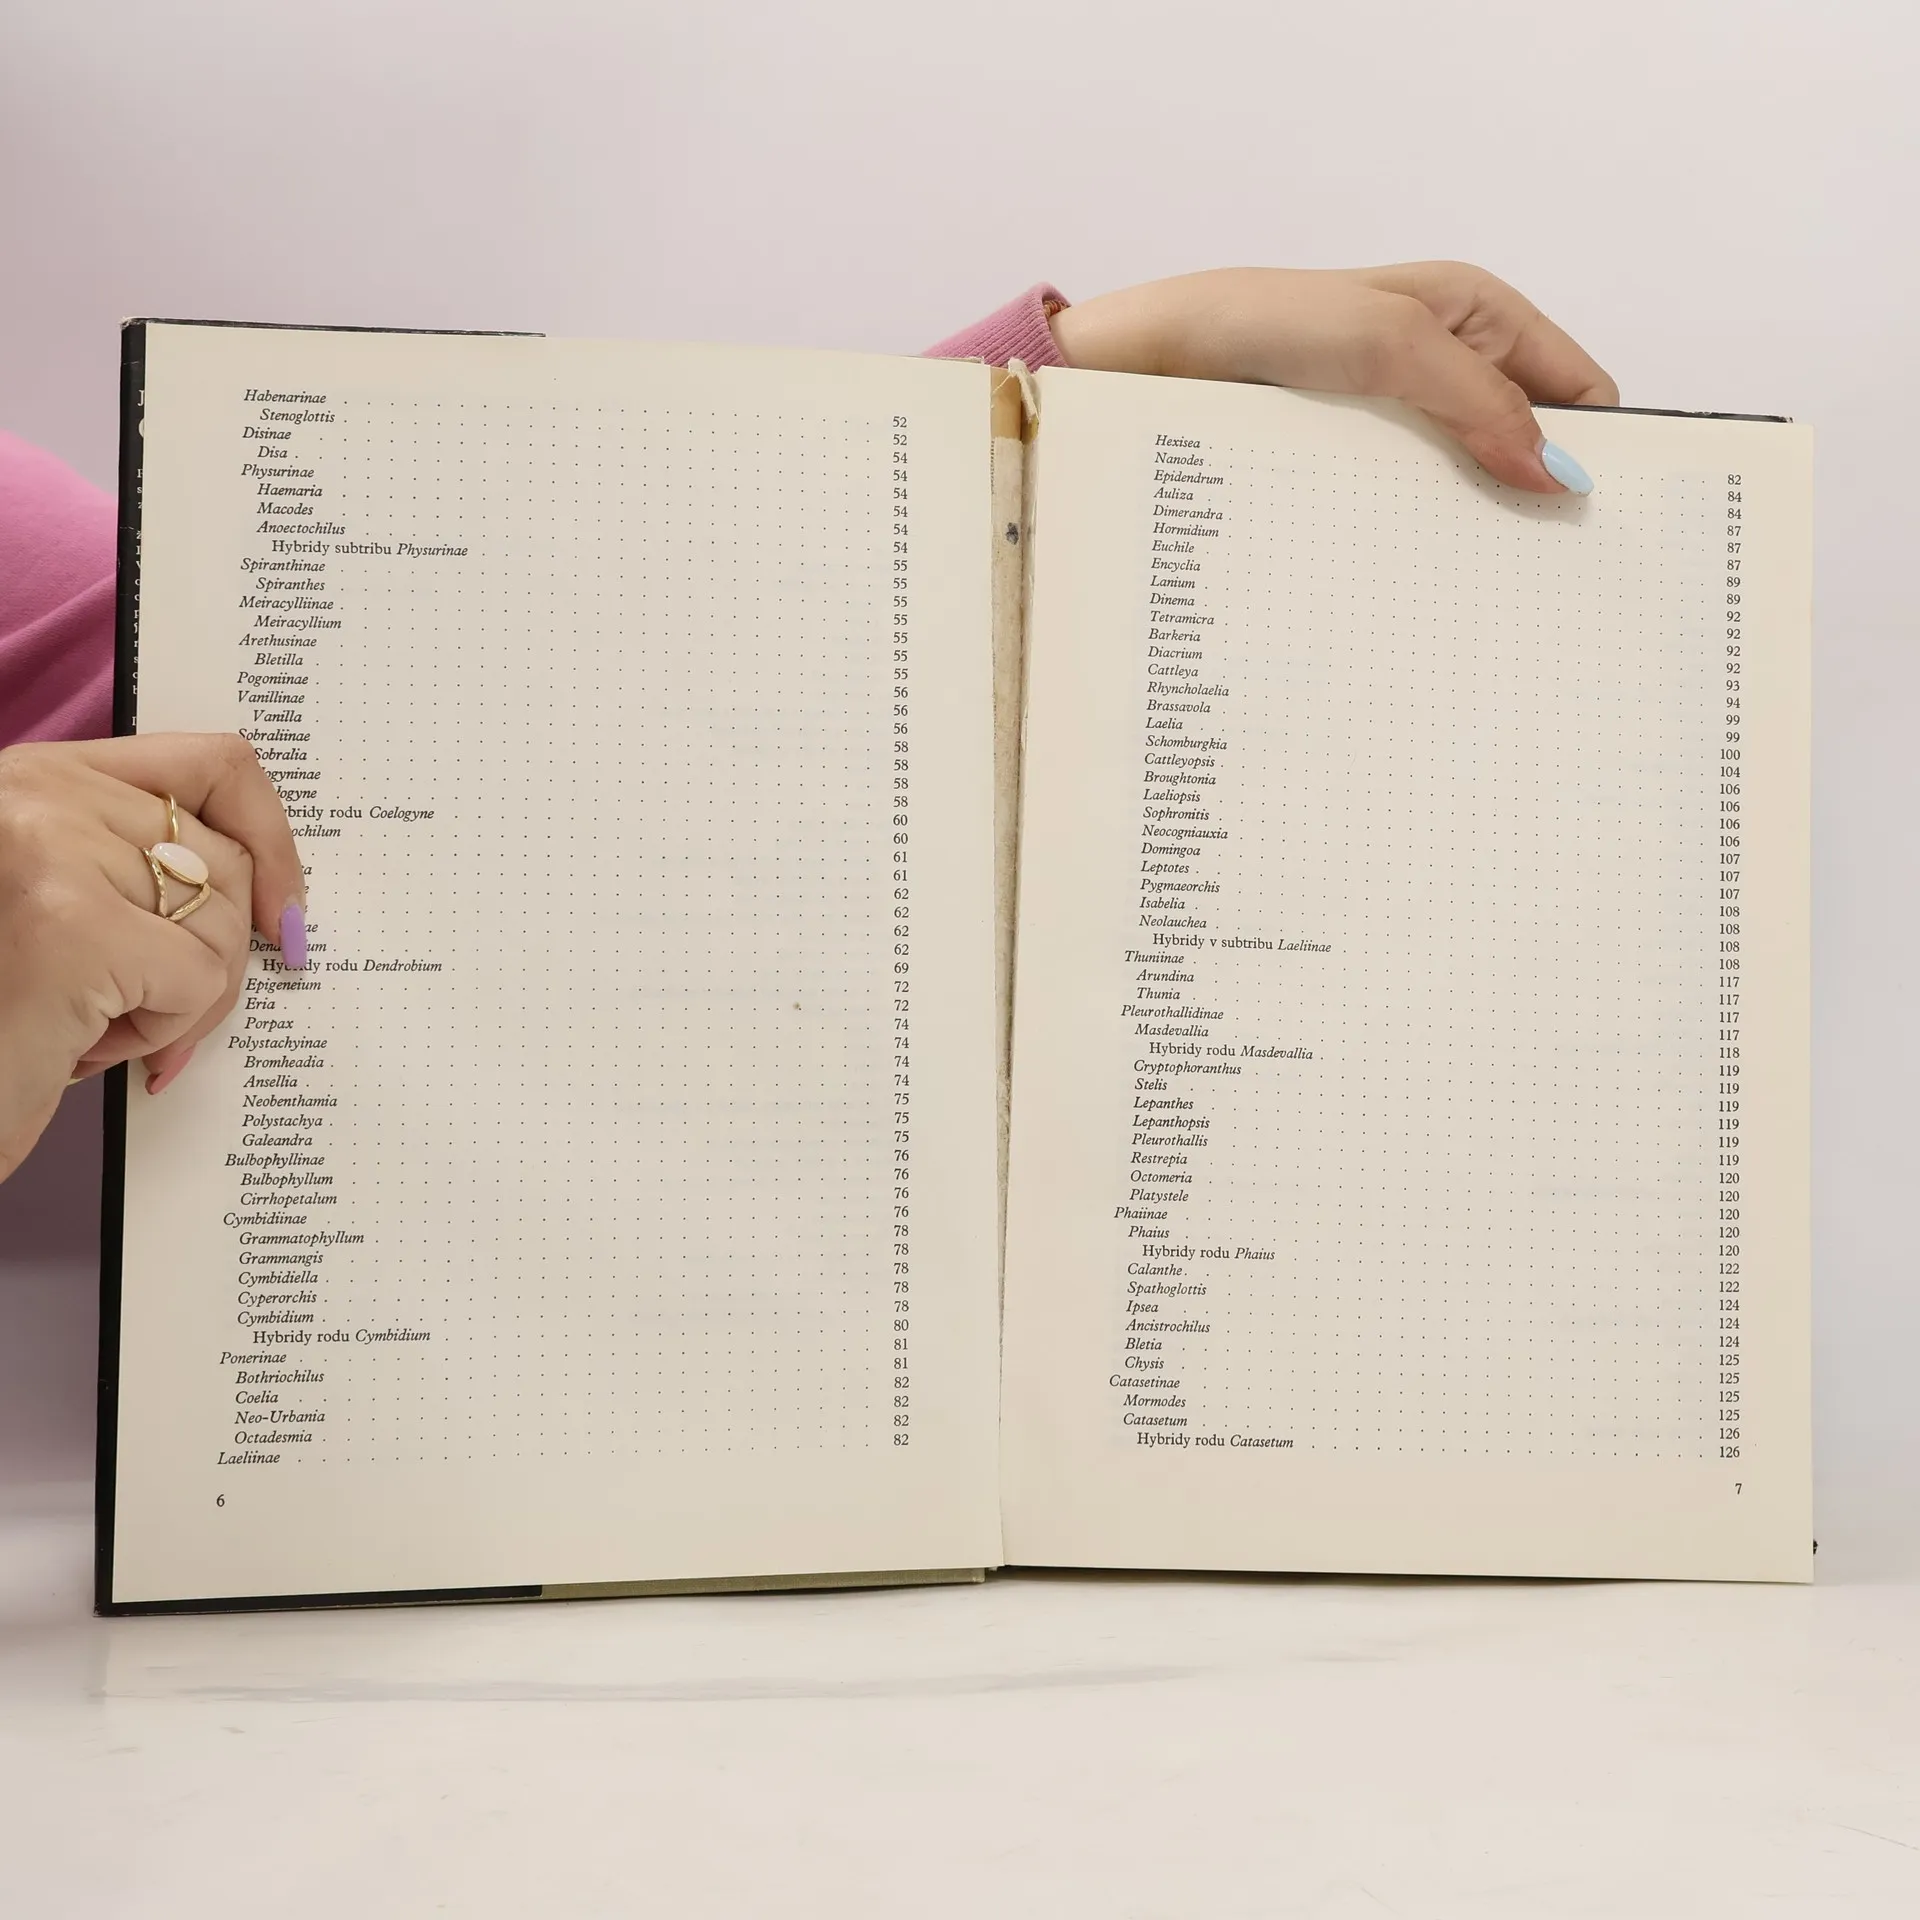 Habenarinae . . . . . 52
Stenoglottis . . . . . 52
Disinae . . . . . 54
Disa . . . . . 54
Physurinae . . . . . 54
Haemaria . . . . . 54
Macodes . . . . . 54
Anoectochilus . . . . . 54
Hybridy subtribu Physurinae . . . . . 55
Spiranthinae . . . . . 55
Spiranthes . . . . . 55
Meiracylliinae . . . . . 55
Meiracyllium . . . . . 55
Arethusinae . . . . . 55
Bletilla . . . . . 55
Pogoniinae . . . . . 56
Vanillinae . . . . . 56
Vanilla . . . . . 56
Sobraliinae . . . . . 58
Sobralia . . . . . 58
. . . . . 58
. . . . . 58
rodu Coelogyne . . . . . 60
. . . . . 60
. . . . . 61
. . . . . 61
. . . . . 62
. . . . . 62
. . . . . 62
. . . . . 62
Hybridy rodu Dendrobium . . . . . 69
Epigeneium . . . . . 72
Eria . . . . . 72
Porpax . . . . . 74
Polystachyinae . . . . . 74
Bromheadia . . . . . 74
Ansellia . . . . . 74
Neobenthamia . . . . . 75
Polystachya . . . . . 75
Galeandra . . . . . 75
Bulbophyllinae . . . . . 76
Bulbophyllum . . . . . 76
Cirrhopetalum . . . . . 76
Cymbidiinae . . . . . 76
Grammatophyllum . . . . . 78
Grammangis . . . . . 78
Cymbidiella . . . . . 78
Cyperorchis . . . . . 78
Cymbidium . . . . . 78
Hybridy rodu Cymbidium . . . . . 80
Ponerinae . . . . . 81
Bothriochilus . . . . . 81
Coelia . . . . . 82
Neo-Urbania . . . . . 82
Octadesmia . . . . . 82
Laeliinae . . . . . 82
6
Hexisea . . . . . 82
Nanodes . . . . . 84
Epidendrum . . . . . 84
Auliza . . . . . 87
Dimerandra . . . . . 87
Hormidium . . . . . 87
Euchile . . . . . 89
Encyclia . . . . . 89
Lanium . . . . . 92
Dinema . . . . . 92
Tetramicra . . . . . 92
Barkeria . . . . . 92
Diacrium . . . . . 93
Cattleya . . . . . 94
Rhyncholaelia . . . . . 99
Brassavola . . . . . 99
Laelia . . . . . 100
Schomburgkia . . . . . 104
Cattleyopsis . . . . . 106
Broughtonia . . . . . 106
Laeliopsis . . . . . 106
Sophronitis . . . . . 106
Neocogniauxia . . . . . 107
Domingoa . . . . . 107
Leptotes . . . . . 107
Pygmaeorchis . . . . . 108
Isabelia . . . . . 108
Neolauchea . . . . . 108
Hybridy v subtribu Laeliinae . . . . . 108
Thuniinae . . . . . 117
Arundina . . . . . 117
Thunia . . . . . 117
Pleurothallidinae . . . . . 117
Masdevallia . . . . . 118
Hybridy rodu Masdevallia . . . . . 119
Cryptophoranthus . . . . . 119
Stelis . . . . . 119
Lepanthes . . . . . 119
Lepanthopsis . . . . . 119
Pleurothallis . . . . . 119
Restrepia . . . . . 120
Octomeria . . . . . 120
Platystele . . . . . 120
Phaiinae . . . . . 120
Phaius . . . . . 120
Hybridy rodu Phaius . . . . . 122
Calanthe . . . . . 122
Spathoglottis . . . . . 124
Ipsea . . . . . 124
Ancistrochilus . . . . . 124
Bletia . . . . . 125
Chysis . . . . . 125
Catasetinae . . . . . 125
Mormodes . . . . . 125
Catasetum . . . . . 126
Hybridy rodu Catasetum . . . . . 126
7